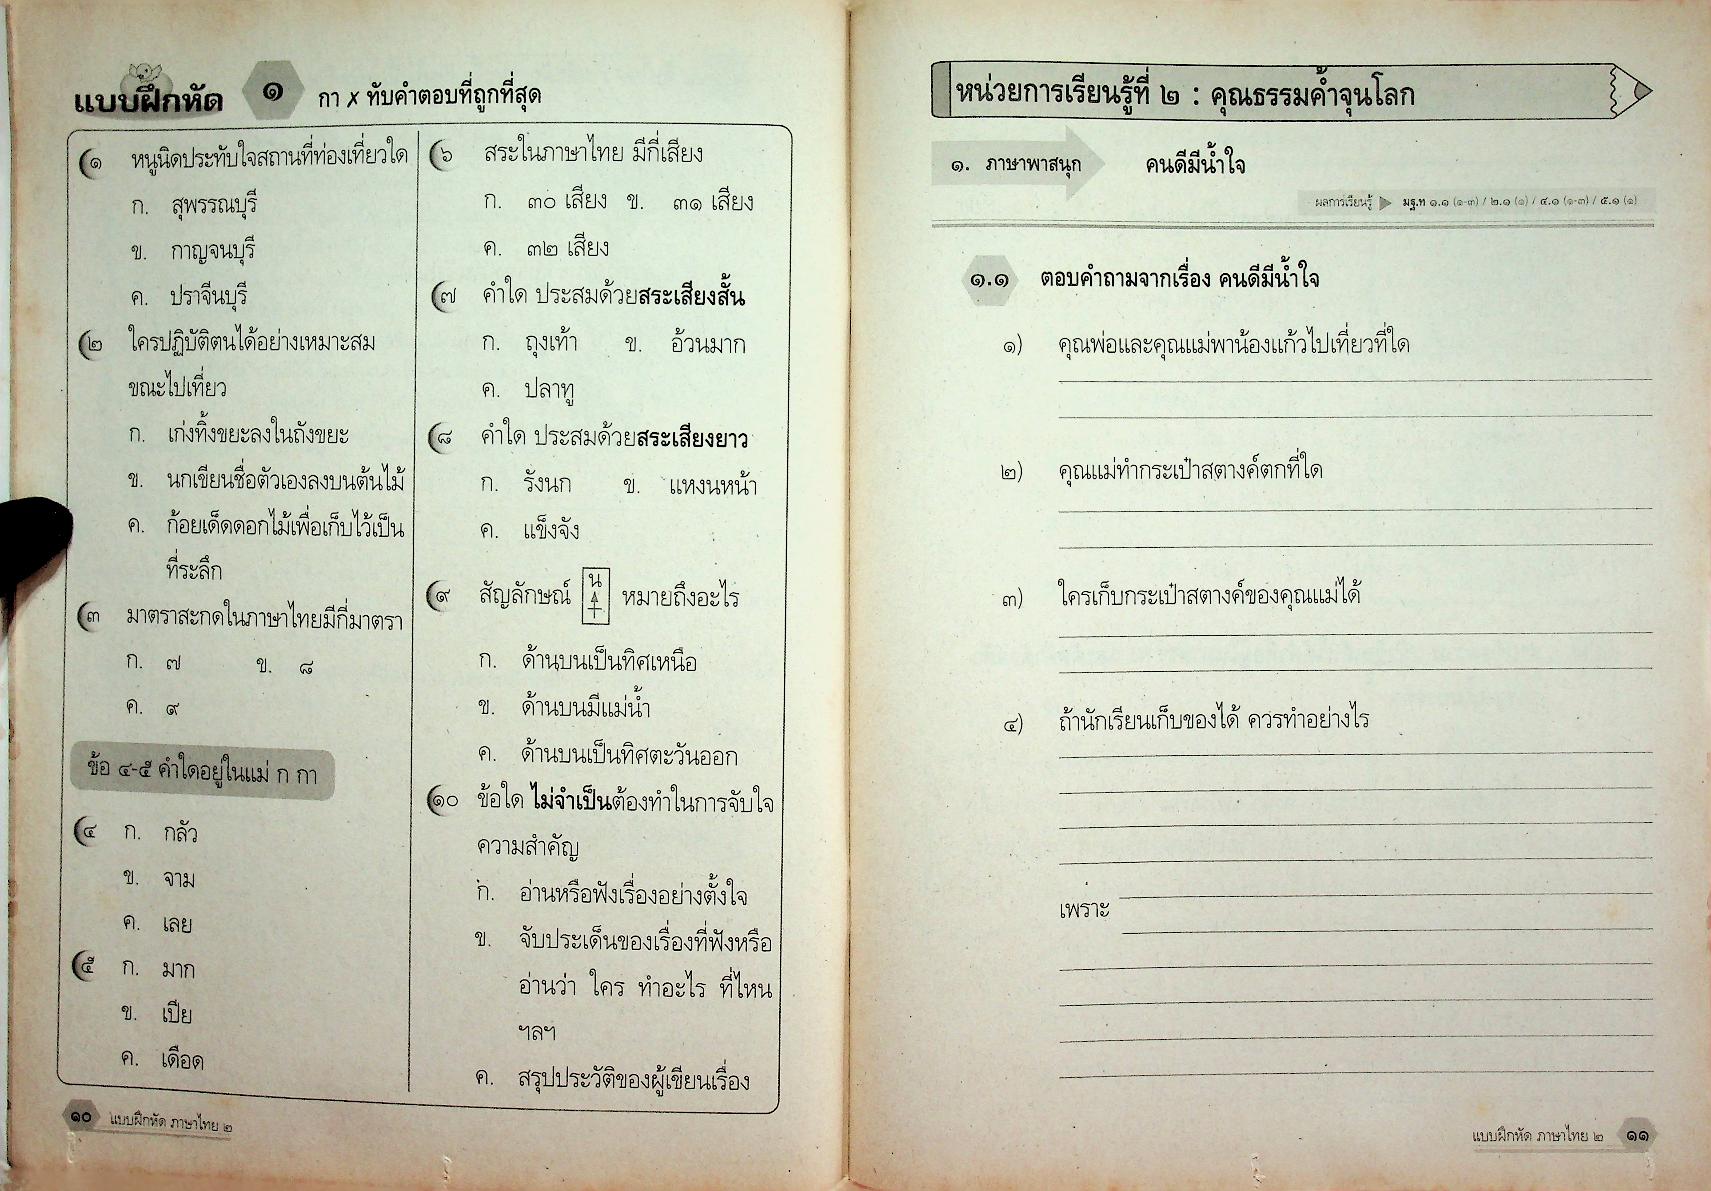 แบบฝึกหัด ๑ กา ✗ ทับคำตอบที่ถูกที่สุด
๑ หนูนิดประทับใจสถานที่ท่องเที่ยวใด
ก. สุพรรณบุรี
ข. กาญจนบุรี
ค. ปราจีนบุรี
๒ ใครปฏิบัติตนได้อย่างเหมาะสม
ขณะไปเที่ยว
ก. เก่งทิ้งขยะลงในถังขยะ
ข. นกเขียนชื่อตัวเองลงบนต้นไม้
ค. ก้อยเด็ดดอกไม้เพื่อเก็บไว้เป็น
ที่ระลึก
๓ มาตราสะกดในภาษาไทยมีกี่มาตรา
ก. ๗ ข. ๘
ค. ๙
ข้อ ๔-๕ คำใดอยู่ในแม่ ก กา
๔ ก. กลัว
ข. จาม
ค. เลย
๕ ก. มาก
ข. เปีย
ค. เดือด
๖ สระในภาษาไทย มีกี่เสียง
ก. ๓๐ เสียง ข. ๓๑ เสียง
ค. ๓๒ เสียง
๗ คำใด ประสมด้วยสระเสียงสั้น
ก. ถุงเท้า ข. อ้วนมาก
ค. ปลาทู
๘ คำใด ประสมด้วยสระเสียงยาว
ก. รังนก ข. แหงนหน้า
ค. แข็งจัง
๙ สัญลักษณ์ น หมายถึงอะไร
ก. ด้านบนเป็นทิศเหนือ
ข. ด้านบนมีแม่น้ำ
ค. ด้านบนเป็นทิศตะวันออก
๑๐ ข้อใด ไม่จำเป็นต้องทำในการจับใจ
ความสำคัญ
ก. อ่านหรือฟังเรื่องอย่างตั้งใจ
ข. จับประเด็นของเรื่องที่ฟังหรือ
อ่านว่า ใคร ทำอะไร ที่ไหน
ฯลฯ
ค. สรุปประวัติของผู้เขียนเรื่อง
๑๐ แบบฝึกหัด ภาษาไทย ๒
หน่วยการเรียนรู้ที่ ๒ : คุณธรรมค้ำจุนโลก
๑. ภาษาพาสนุก คนดีมีน้ำใจ
ผลการเรียนรู้ ▶ มฐ.ท ๑.๑ (๑-๓) / ๒.๑ (๑) / ๔.๑ (๑-๓) / ๕.๑ (๑)
๑.๑ ตอบคำถามจากเรื่อง คนดีมีน้ำใจ
๑) คุณพ่อและคุณแม่พาน้องแก้วไปเที่ยวที่ใด
๒) คุณแม่ทำกระเป๋าสตางค์ตกที่ใด
๓) ใครเก็บกระเป๋าสตางค์ของคุณแม่ได้
๔) ถ้านักเรียนเก็บของได้ ควรทำอย่างไร
เพราะ
แบบฝึกหัด ภาษาไทย ๒ ๑๑